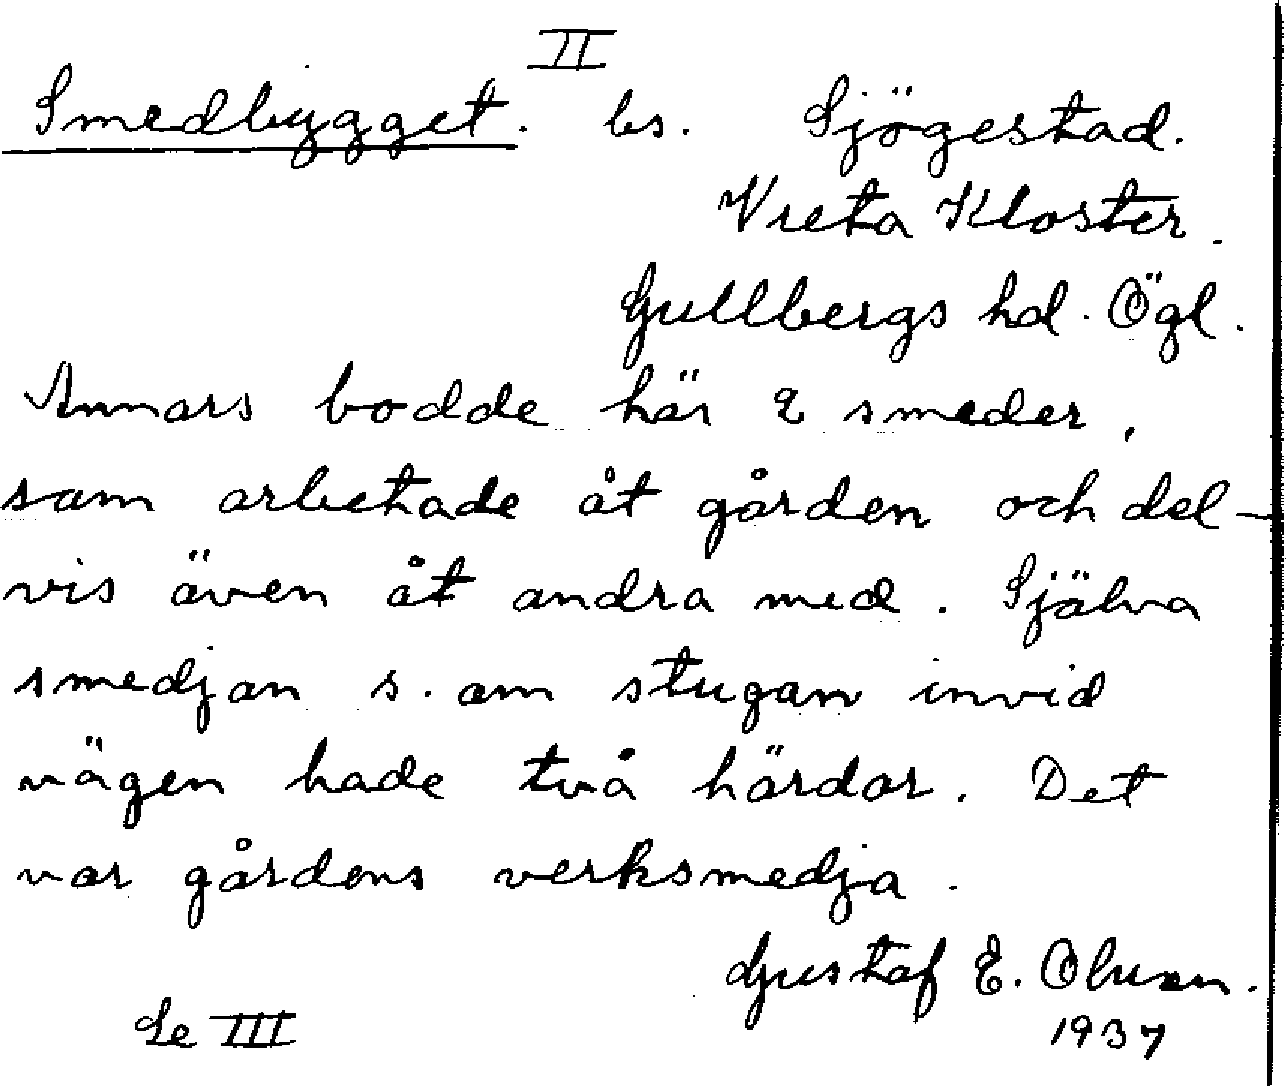 II
Smedbygget. bs. Sjögestad.
Vreta Kloster.
Gullbergs hd. Ögl.
Annars bodde här 2 smeder,
som arbetade åt gården och del-
vis även åt andra med. Själva
smedjan s. om stugan invid
vägen hade två härdar. Det
var gårdens verksmedja.
Gustaf E.
Se III 1937